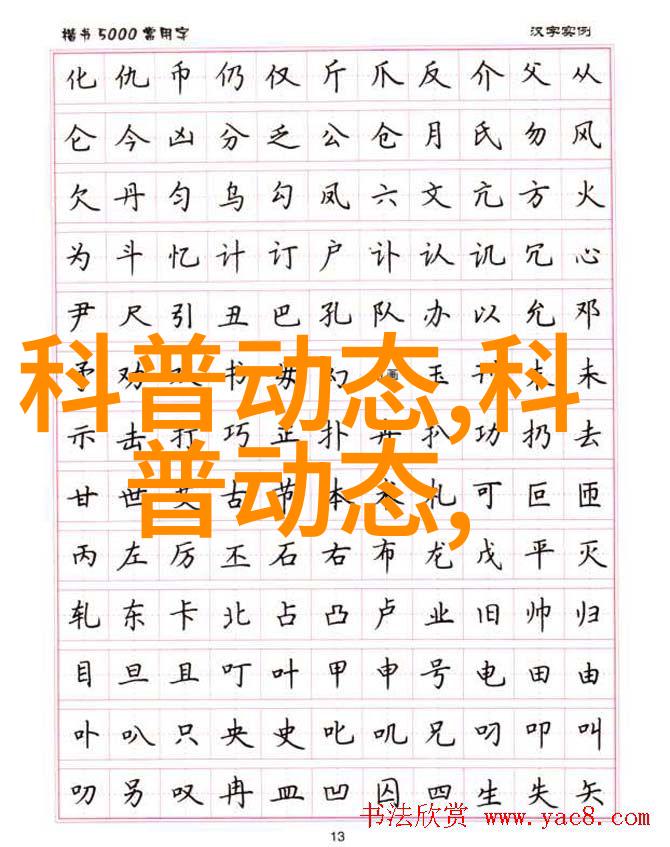 楷书5000常用字 汉字实例
化仇币仍仅斤爪反介父从
仑今凶分乏公仓月氏勿风
欠丹匀乌勾凤六文亢方火
为斗忆计订户讣认讥冗心
尹尺引丑巴孔队办以允邓
科普动态,科
书 玉 未
示击打巧正扑 扒功扔去
普动态,
甘世 古节本 札可叵匝
丙左厉丕石右布龙戊平灭
轧东卡北占凸卢业旧帅归
目旦且叮叶甲申号电田由
卟叭只央史叱叽兄叼叩叫
叨另叹冉皿凹囚四生失矢
书法欣赏 www.yac8.com
13